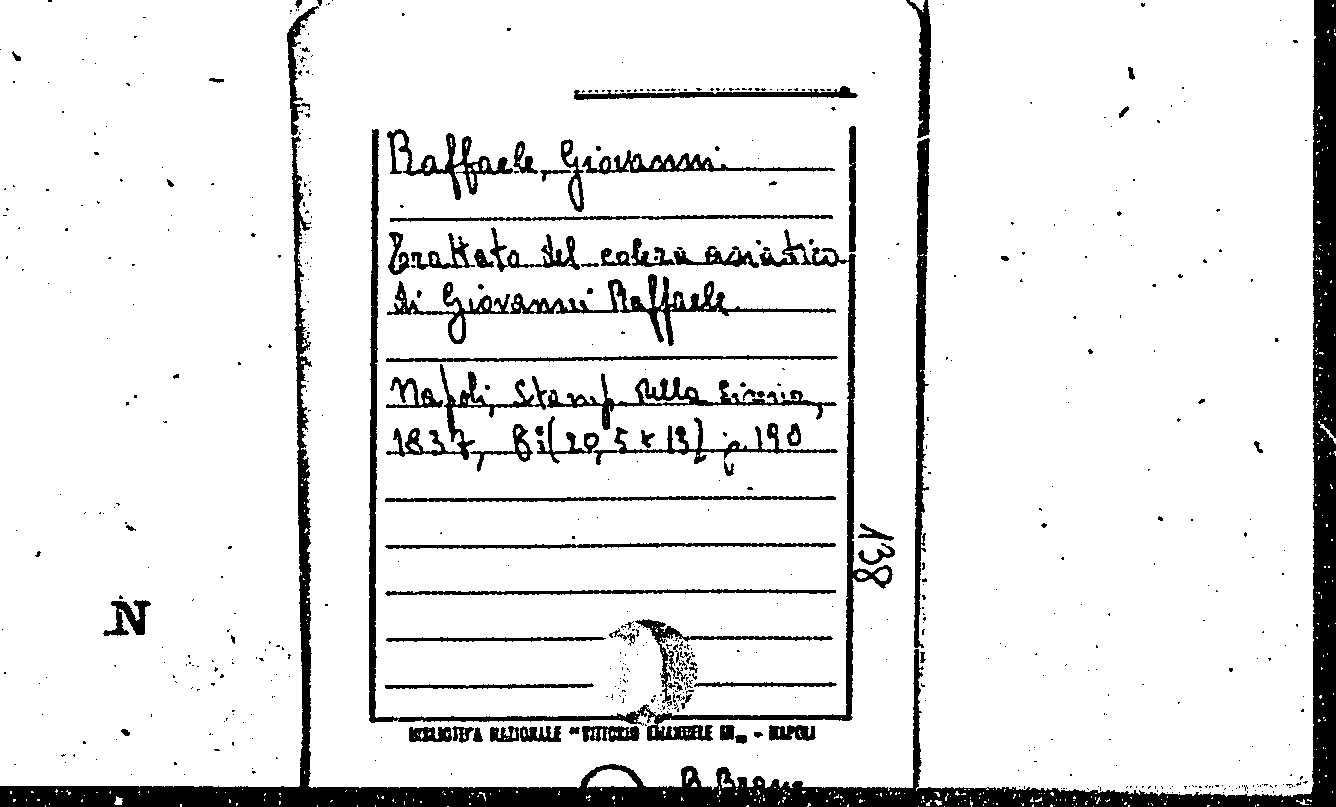 Raffaele, Giovanni.
Trattato del colera asiatico
di Giovanni Raffaele.
Napoli, Stamp. della Sirena,
1837, 8i(20,5 x 13) p. 190
138
N
BIBLIOTECA NAZIONALE "VITTORIO EMANUELE III" - NAPOLI
B. Br